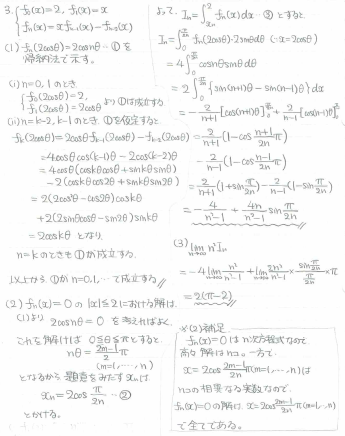 3. { f₀(x)=2, f₁(x)=x
fₙ(x)=xfₙ₋₁(x)-fₙ₋₂(x)
(1) fₙ(2cosθ)=2cosnθ …① を
帰納法で示す。
(i) n=0,1 のとき
{ f₀(2cosθ)=2,
f₁(2cosθ)=2cosθ より①は成立する
(ii) n=k-2, k-1 のとき ①を仮定すると
fₖ(2cosθ)=2cosθfₖ₋₁(2cosθ)-fₖ₋₂(2cosθ)
=4cosθcos(k-1)θ-2cos(k-2)θ
=4cosθ(coskθcosθ+sinkθsinθ)
-2(coskθcos2θ+sinkθsin2θ)
=2(2cos²θ-cos2θ)coskθ
+2(2sinθcosθ-sin2θ)sinkθ
=2coskθ となり、
n=kのときも①が成立する。
以上から ①がn=0,1,…で成立する
(2) fₙ(x)=0 の |x|≦2における解は、
(1)より 2cosnθ=0 を考えればよく、
これを解けば 0≦θ≦πとすると、
nθ=(2m-1)/2 π
(m=1,…,n)
となるから 題意をみたすxₙは、
xₙ=2cos π/2n …②
とかける。
よって、Iₙ=∫_{xₙ}^{2} fₙ(x)dx …③ とすると、
Iₙ=∫_{0}^{π/2n} fₙ(2cosθ)・2sinθdθ (∵x=2cosθ)
=4∫_{0}^{π/2n} cosnθsinθdθ
=2∫_{0}^{π/2n} {sin(n+1)θ-sin(n-1)θ}dθ
=-2/(n+1)[cos(n+1)θ]_{0}^{π/2n}+2/(n-1)[cos(n-1)θ]_{0}^{π/2n}
=2/(n+1)(1-cos (n+1)/2n π)
-2/(n-1)(1-cos (n-1)/2n π)
=2/(n+1)(1+sin π/2n)-2/(n-1)(1-sin π/2n)
=-4/(n²-1)+4n/(n²-1) sin π/2n
(3) lim_{n→∞} n²Iₙ
=-4 lim_{n→∞} n²/(n²-1)+lim_{n→∞} 2n²/(n²-1)×sin(π/2n)/(π/2n)×π
=2(π-2)
※(2)補足
fₙ(x)=0 は n次方程式なので
高々解はnコ。一方で、
x=2cos (2m-1)/2n π(m=1,…,n)は
nコの相異なる実数なので、
fₙ(x)=0の解は、x=2cos (2m-1)/2n π(m=1,…,n)
で全てである。